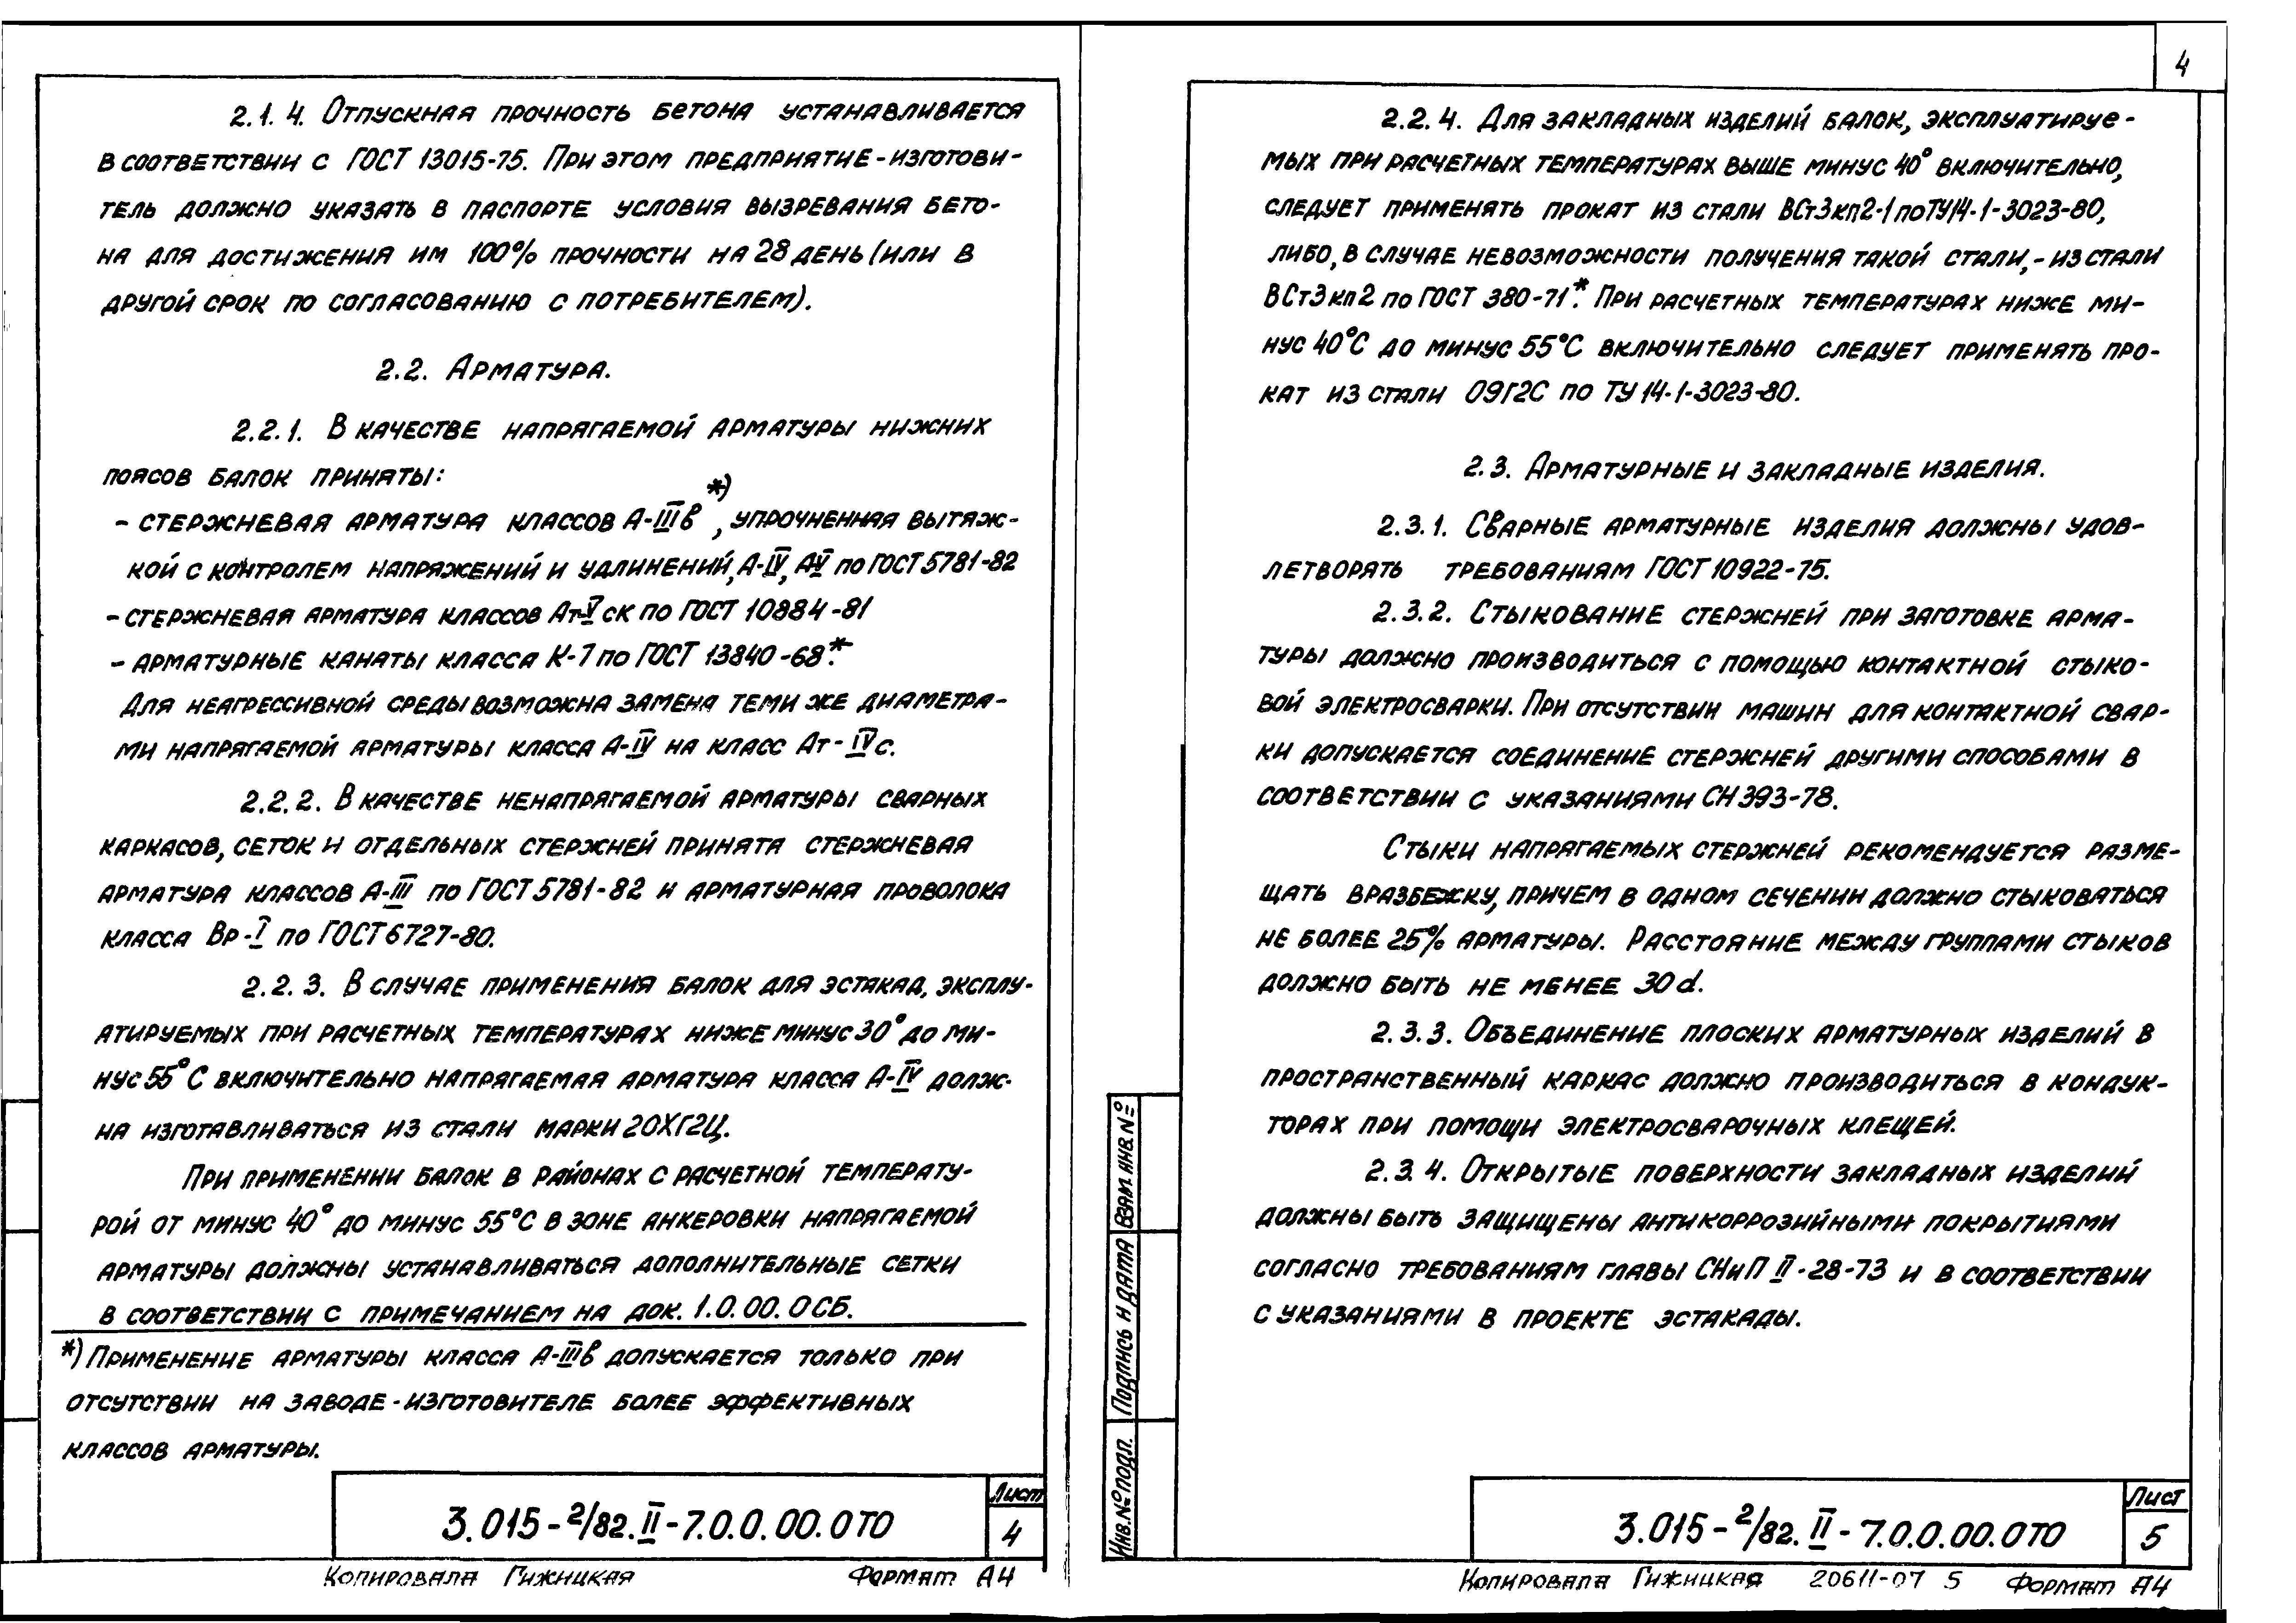 2.1.4. Отпускная прочность бетона устанавливается
в соответствии с ГОСТ 13015-75. При этом предприятие-изготови-
тель должно указать в паспорте условия вызревания бето-
на для достижения им 100% прочности на 28 день (или в
другой срок по согласованию с потребителем).
2.2. Арматура.
2.2.1. В качестве напрягаемой арматуры нижних
поясов балок приняты:
- стержневая арматура классов А-IIIв*), упрочненная вытяж-
кой с контролем напряжений и удлинений, А-IV, А-V по ГОСТ 5781-82
- стержневая арматура классов Ат-V ск по ГОСТ 10884-81
- арматурные канаты класса К-7 по ГОСТ 13840-68*.
Для неагрессивной среды возможна замена теми же диаметра-
ми напрягаемой арматуры класса А-IV на класс Ат-IVс.
2.2.2. В качестве ненапрягаемой арматуры сварных
каркасов, сеток и отдельных стержней принята стержневая
арматура классов А-III по ГОСТ 5781-82 и арматурная проволока
класса Вр-I по ГОСТ 6727-80.
2.2.3. В случае применения балок для эстакад, эксплу-
атируемых при расчетных температурах ниже минус 30° до ми-
нус 55°С включительно напрягаемая арматура класса А-IV долж-
на изготавливаться из стали марки 20ХГ2Ц.
При применении балок в районах с расчетной температу-
рой от минус 40° до минус 55°С в зоне анкеровки напрягаемой
арматуры должны устанавливаться дополнительные сетки
в соответствии с примечанием на док. 1.0.00.0СБ.
*) Применение арматуры класса А-IIIв допускается только при
отсутствии на заводе-изготовителе более эффективных
классов арматуры.
3.015-2/82.II-7.0.0.00.0ТО
Лист
4
Копировала Гижницкая Формат А4
4
2.2.4. Для закладных изделий балок, эксплуатируе-
мых при расчетных температурах выше минус 40° включительно,
следует применять прокат из стали ВСт3кп2-1 по ТУ14-1-3023-80,
либо, в случае невозможности получения такой стали,- из стали
ВСт3кп2 по ГОСТ 380-71*. При расчетных температурах ниже ми-
нус 40°С до минус 55°С включительно следует применять про-
кат из стали 09Г2С по ТУ 14-1-3023-80.
2.3. Арматурные и закладные изделия.
2.3.1. Сварные арматурные изделия должны удов-
летворять требованиям ГОСТ 10922-75.
2.3.2. Стыкование стержней при заготовке арма-
туры должно производиться с помощью контактной стыко-
вой электросварки. При отсутствии машин для контактной свар-
ки допускается соединение стержней другими способами в
соответствии с указаниями СН 393-78.
Стыки напрягаемых стержней рекомендуется разме-
щать вразбежку, причем в одном сечении должно стыковаться
не более 25% арматуры. Расстояние между группами стыков
должно быть не менее 30d.
2.3.3. Объединение плоских арматурных изделий в
пространственный каркас должно производиться в кондук-
торах при помощи электросварочных клещей.
2.3.4. Открытые поверхности закладных изделий
должны быть защищены антикоррозийными покрытиями
согласно требованиям главы СНиП II-28-73 и в соответствии
с указаниями в проекте эстакады.
Взам. инв. №
Подпись и дата
Инв. № подл.
3.015-2/82.II-7.0.0.00.0ТО
Лист
5
Копировала Гижницкая 20611-07 5 Формат А4